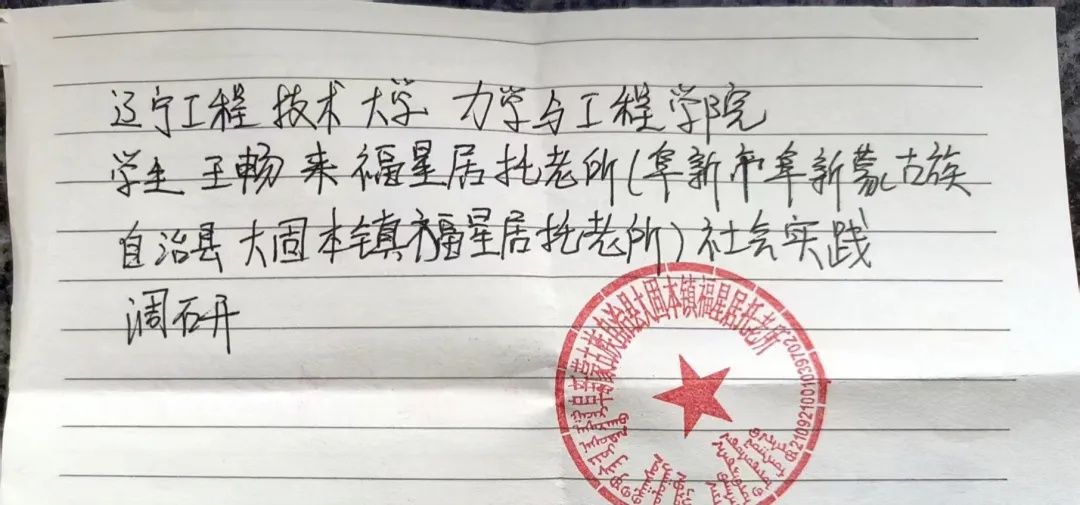 辽宁工程技术大学 力学与工程学院
学生 王畅 来福星居托老所(阜新市阜新蒙古族
自治县大固本镇福星居托老所)社会实践
调研
阜新蒙古族自治县大固本镇福星居托老所
210921001039702